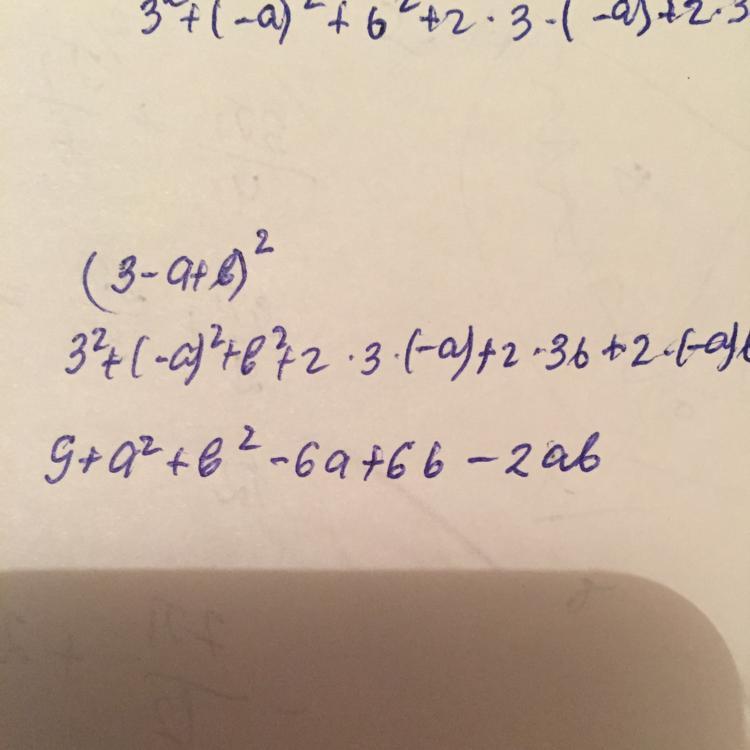 3²+(-a)²+b²+2·3·(-a)+2·3
(3-a+b)²
3²+(-a)²+b²+2·3·(-a)+2·3b+2·(-a)b
9+a²+b²-6a+6b-2ab